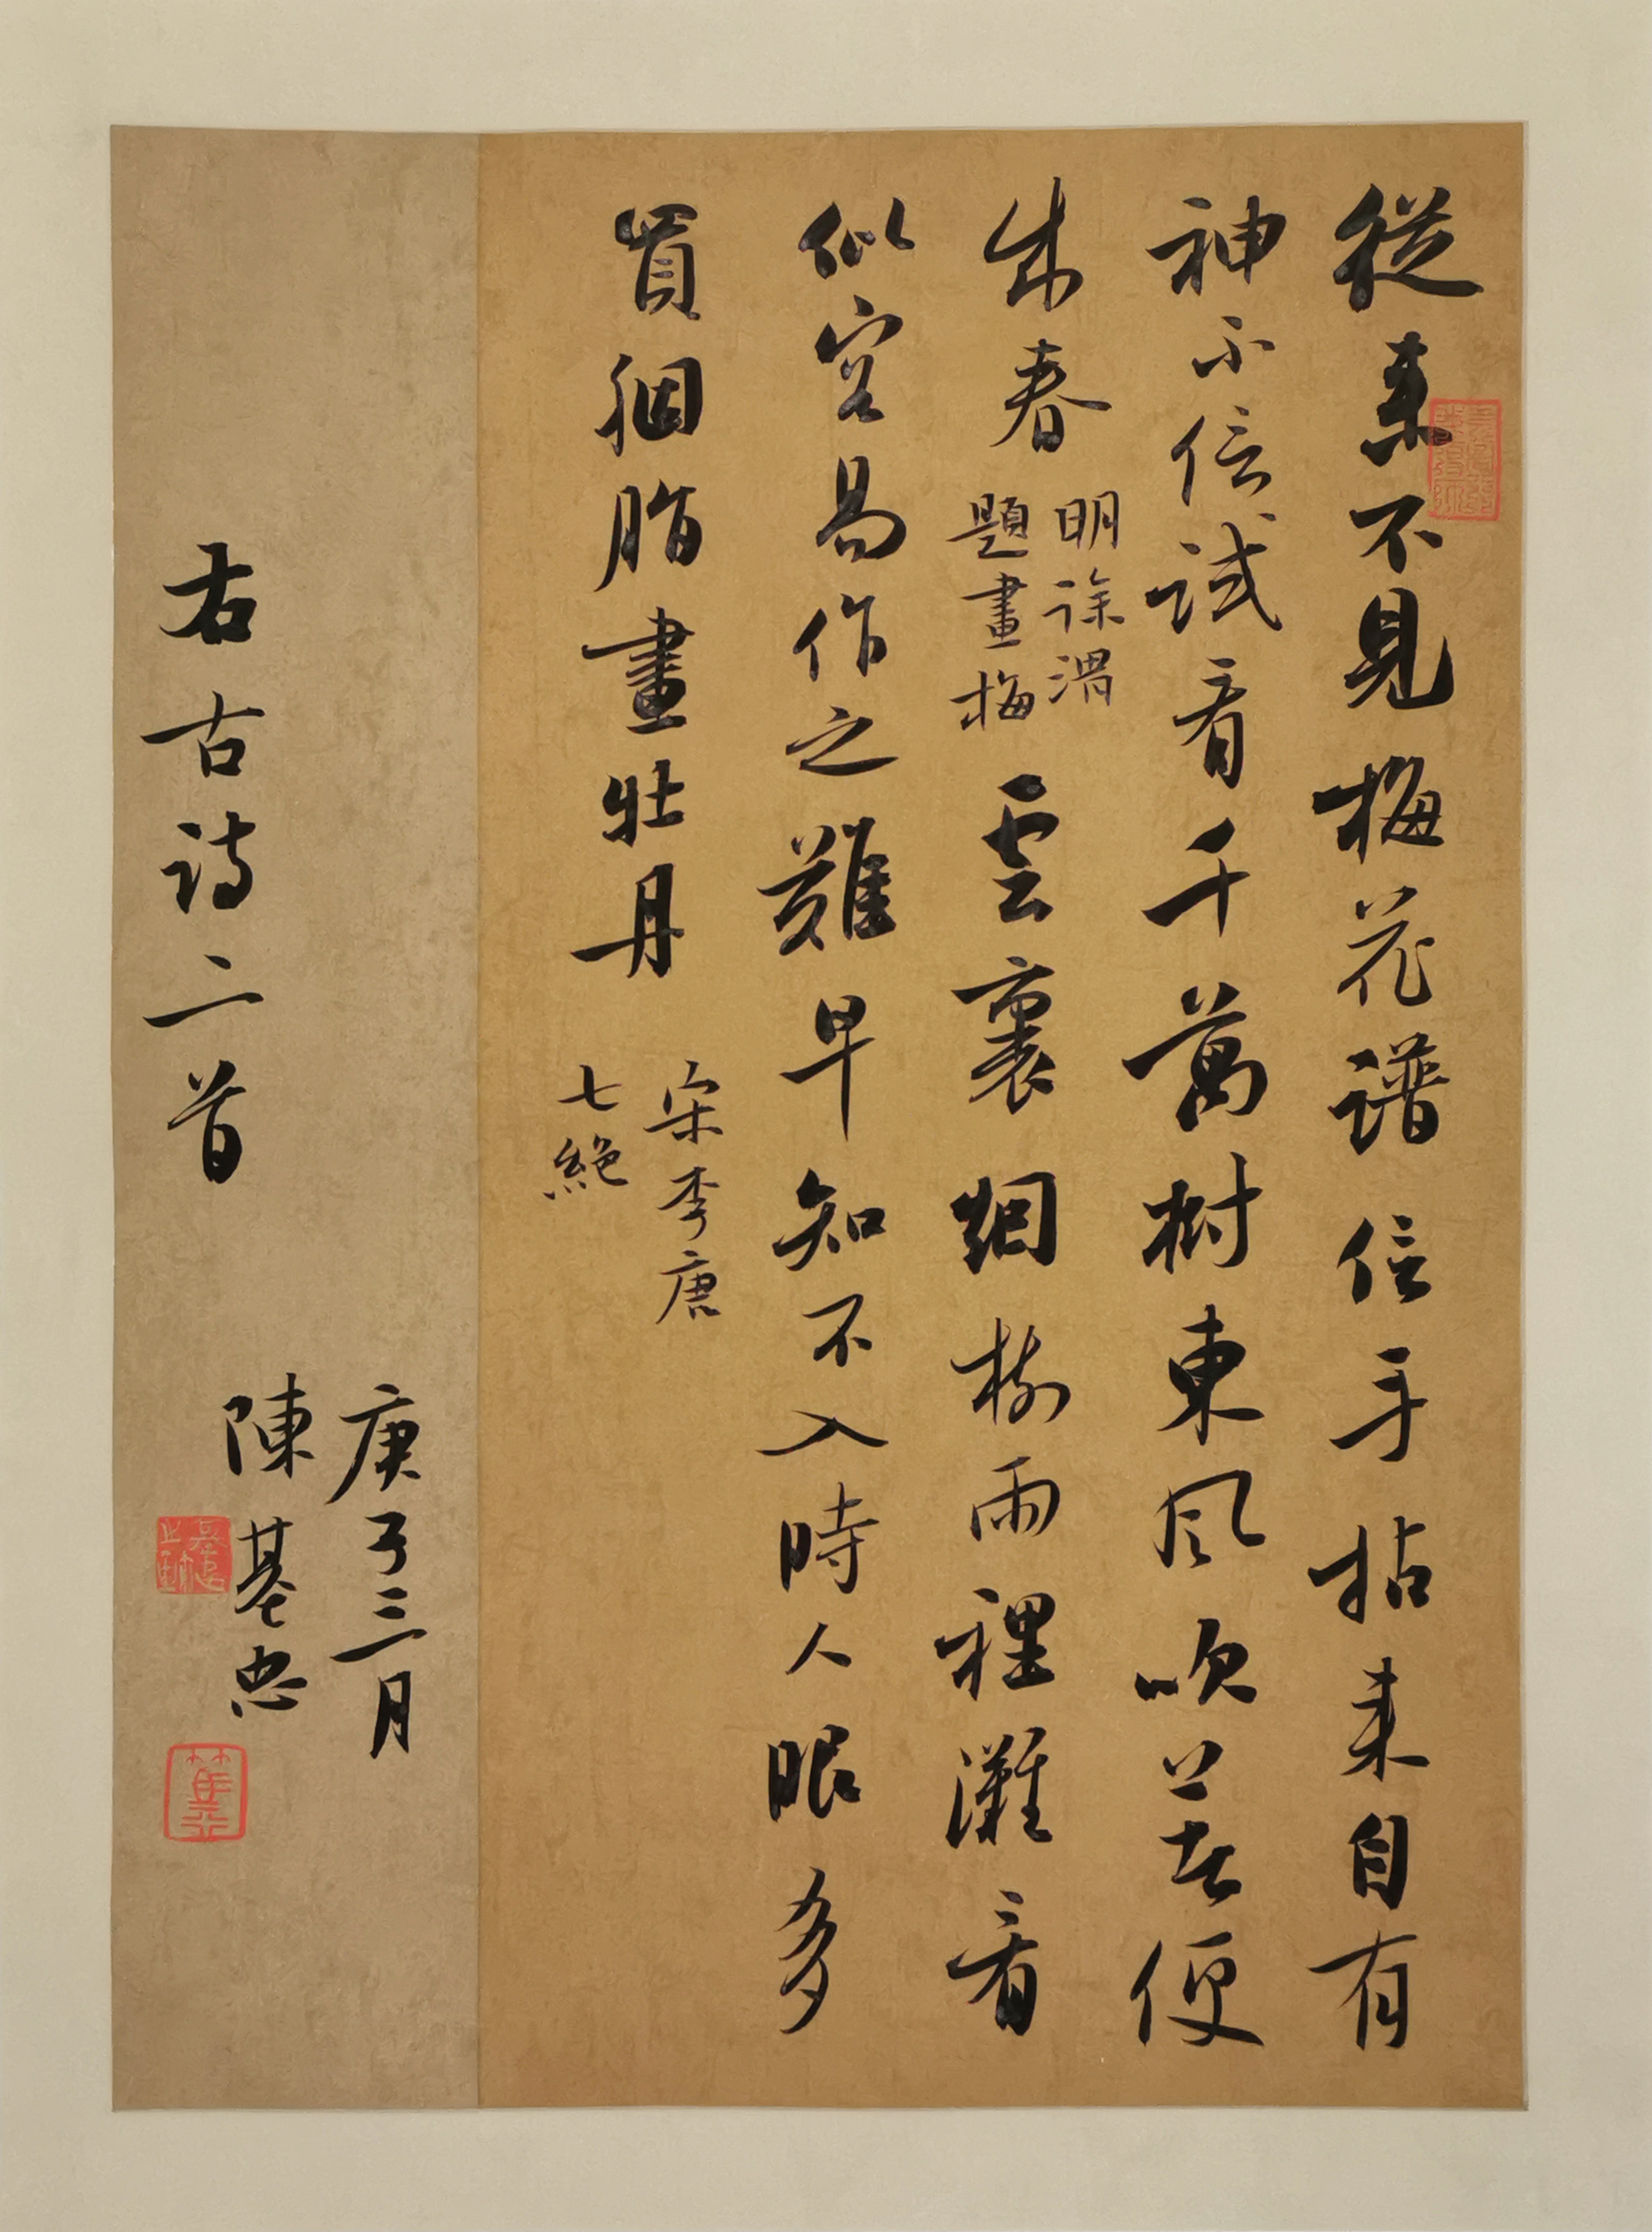 從來不見梅花譜信手拈來自有
神不信試看千萬樹東風吹著便
成春
明徐渭
題畫梅
雲裏烟村雨裡灘看
似容易作之難早知不入時人眼多
買胭脂畫牡丹
宋李唐
七絕
右古詩二首
庚子三月
陳基忠
篤行